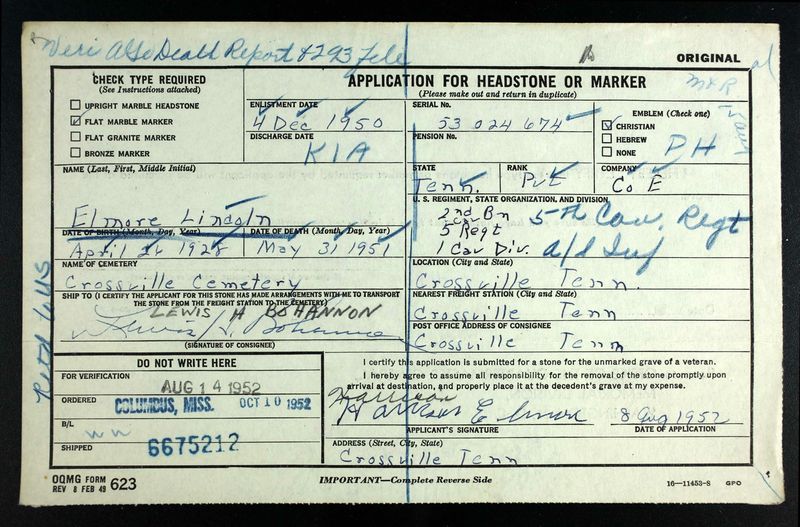 Veri AGO Death Report & 293 file
ORIGINAL
CHECK TYPE REQUIRED
(See Instructions attached)
UPRIGHT MARBLE HEADSTONE
FLAT MARBLE MARKER
FLAT GRANITE MARKER
BRONZE MARKER
APPLICATION FOR HEADSTONE OR MARKER
(Please make out and return in duplicate)
ENLISTMENT DATE
4 Dec 1950
DISCHARGE DATE
KIA
SERIAL No.
53 024 674
PENSION No.
EMBLEM (Check one)
CHRISTIAN
HEBREW
NONE
PH
STATE
Tenn.
RANK
Pvt
COMPANY
Co E
NAME (Last, First, Middle Initial)
Elmore Lincoln
U. S. REGIMENT, STATE ORGANIZATION, AND DIVISION
2nd Bn
5 Cav Regt
1 Cav Div.
5th Cav. Regt
a/d Inf
DATE OF BIRTH (Month, Day, Year)
April 26 1928
DATE OF DEATH (Month, Day, Year)
May 31 1951
NAME OF CEMETERY
Crossville Cemetery
LOCATION (City and State)
Crossville Tenn.
SHIP TO (I CERTIFY THE APPLICANT FOR THIS STONE HAS MADE ARRANGEMENTS WITH ME TO TRANSPORT
THE STONE FROM THE FREIGHT STATION TO THE CEMETERY)
LEWIS H BOHANNON
Lewis H. Bohannon
(SIGNATURE OF CONSIGNEE)
NEAREST FREIGHT STATION (City and State)
Crossville Tenn
POST OFFICE ADDRESS OF CONSIGNEE
Crossville Tenn
DO NOT WRITE HERE
FOR VERIFICATION
AUG 14 1952
ORDERED
COLUMBUS, MISS. OCT 10 1952
B/L
SHIPPED
6675212
I certify this application is submitted for a stone for the unmarked grave of a veteran.
I hereby agree to assume all responsibility for the removal of the stone promptly upon
arrival at destination, and properly place it at the decedent's grave at my expense.
Harrison
Harrison Elmore
8 Aug 1952
APPLICANT'S SIGNATURE
DATE OF APPLICATION
ADDRESS (Street, City, State)
Crossville Tenn
OQMG FORM
REV 8 FEB 49 623
IMPORTANT—Complete Reverse Side
16—11453-8 GPO